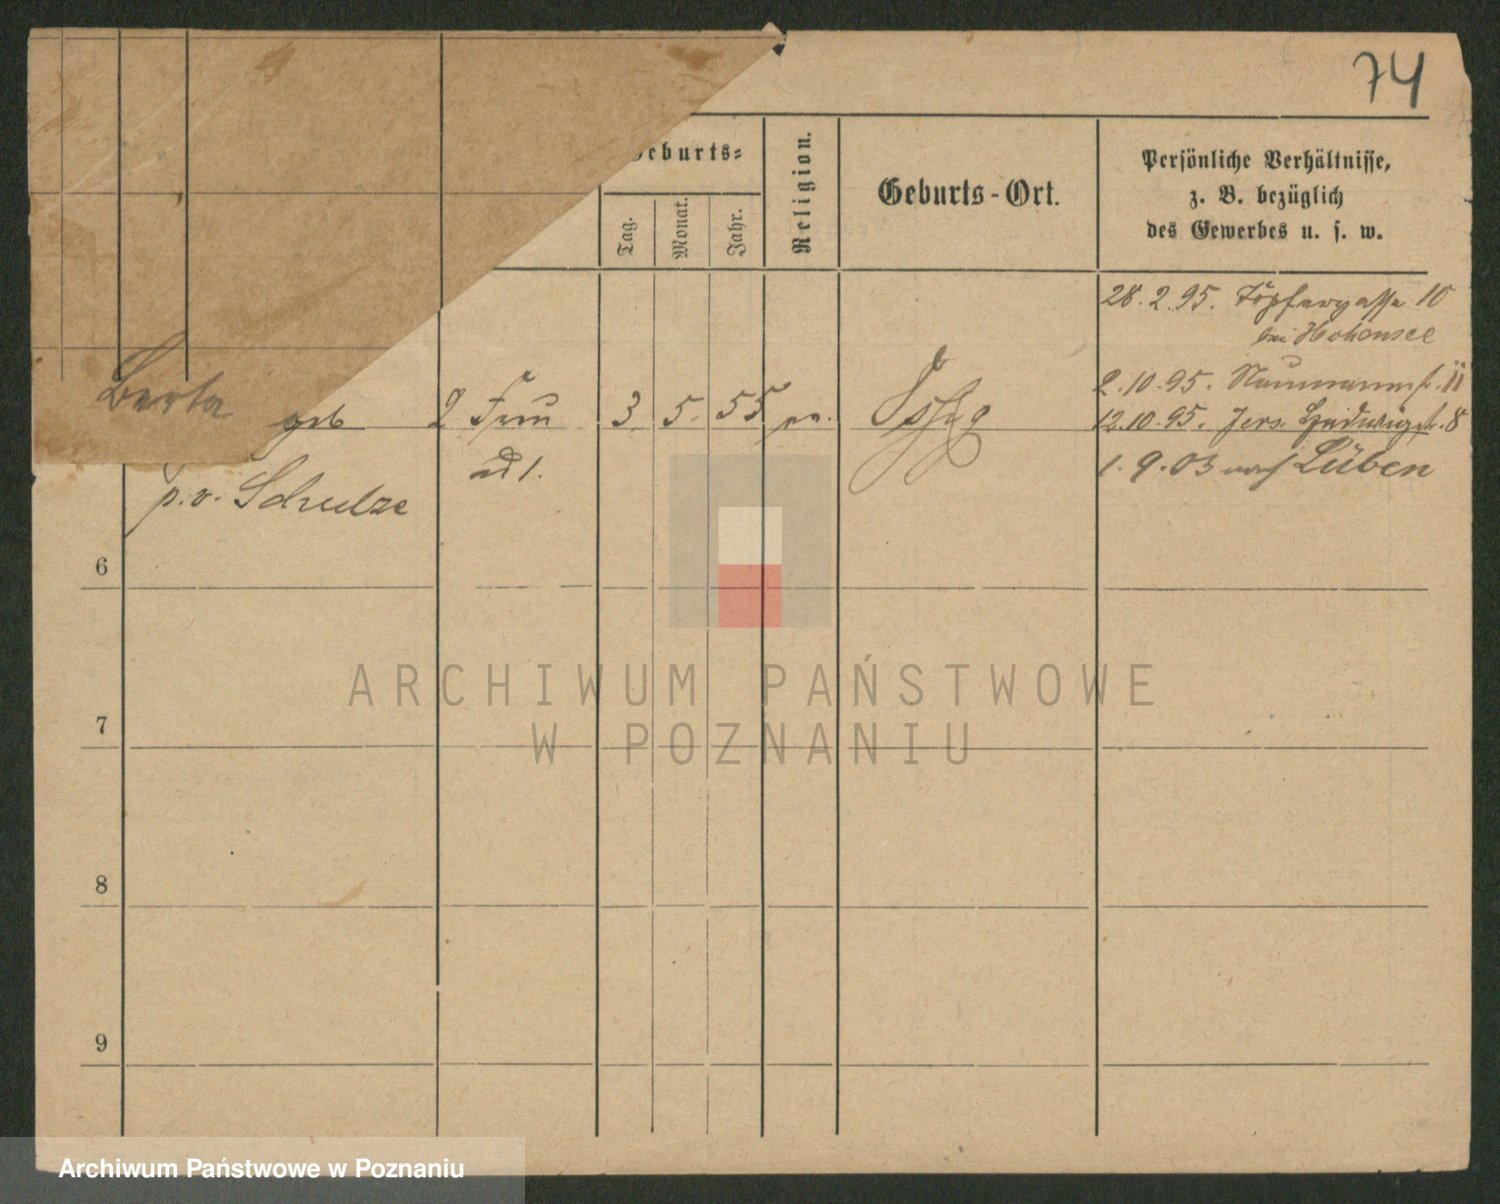 74
Geburts=
Tag.
Monat.
Jahr.
Religion.
Geburts-Ort.
Persönliche Verhältnisse,
z. B. bezüglich
des Gewerbes u. s. w.
28. 2. 95. Töpfergasse 10
bei Hohensee
Berta geb
p. v. Schulze
2 Frau
ad 1.
3. 5. 55
2. 10. 95. Naumannstr.
12. 10. 95. Jers. Hedwigstr. 8
1. 9. 03 nach Lüben
6
7
8
9
ARCHIWUM PAŃSTWOWE
W POZNANIU
Archiwum Państwowe w Poznaniu